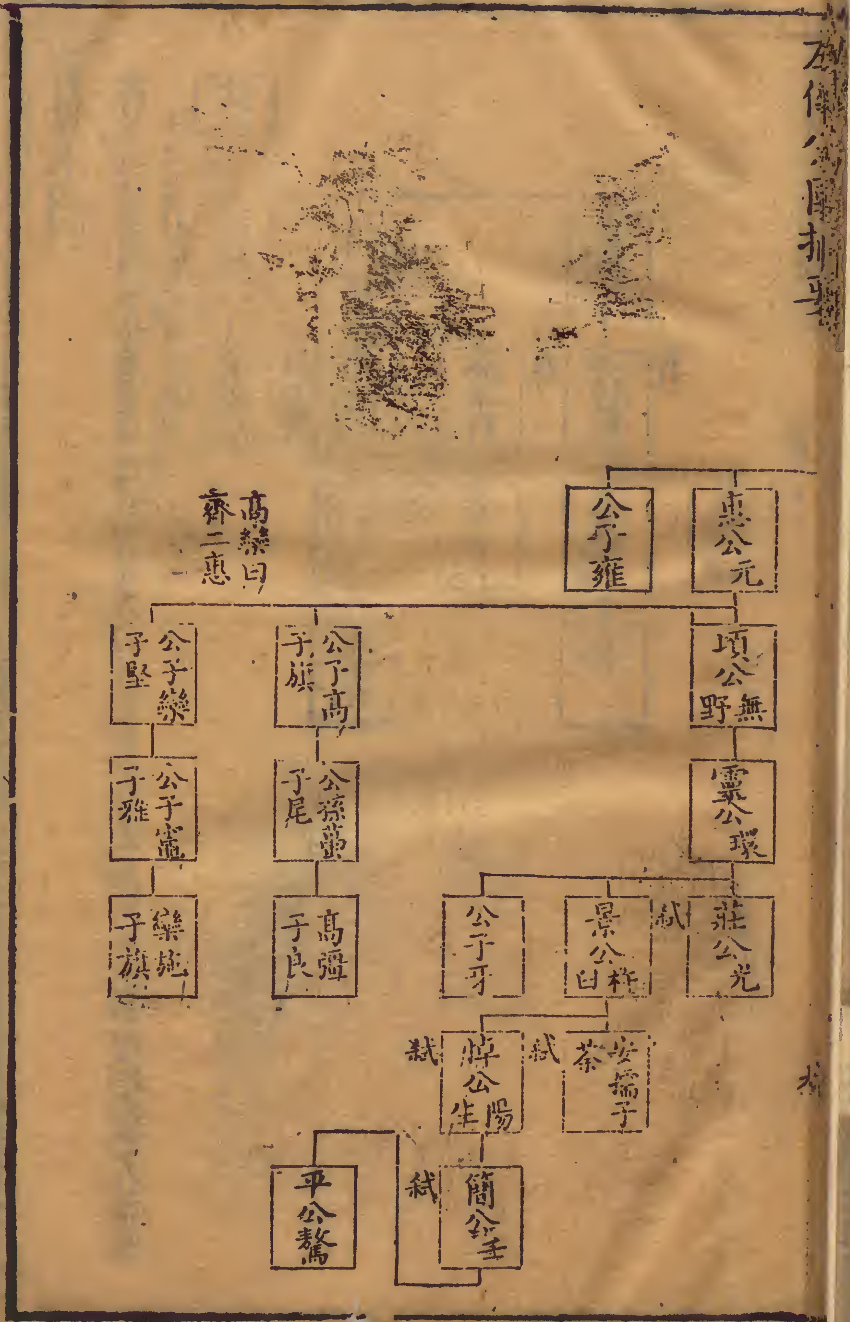 左傳分國
惠公元
公子雍
高欒曰
齊二惠
頃公無野
公子高
子旗
公子欒
子堅
靈公環
公孫蠆
子尾
公子竈
子雅
莊公光
弑
景公杵臼
公子牙
高彊
子良
欒施
子旗
安孺子
荼
弑
悼公陽生
弑
簡公壬
弑
平公驁